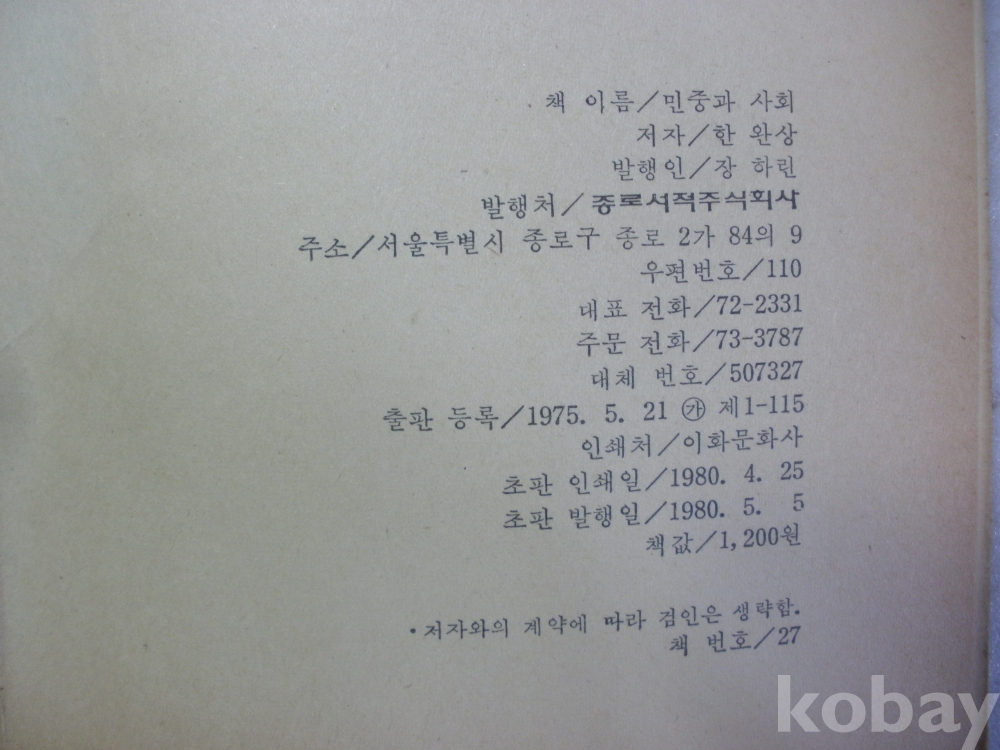 책 이름/민중과 사회
저자/한 완상
발행인/장 하린
발행처/종로서적주식회사
주소/서울특별시 종로구 종로 2가 84의 9
우편번호/110
대표 전화/72-2331
주문 전화/73-3787
대체 번호/507327
출판 등록/1975. 5. 21 ㉮ 제1-115
인쇄처/이화문화사
초판 인쇄일/1980. 4. 25
초판 발행일/1980. 5. 5
책값/1,200원
• 저자와의 계약에 따라 검인은 생략함.
책 번호/27
kobay